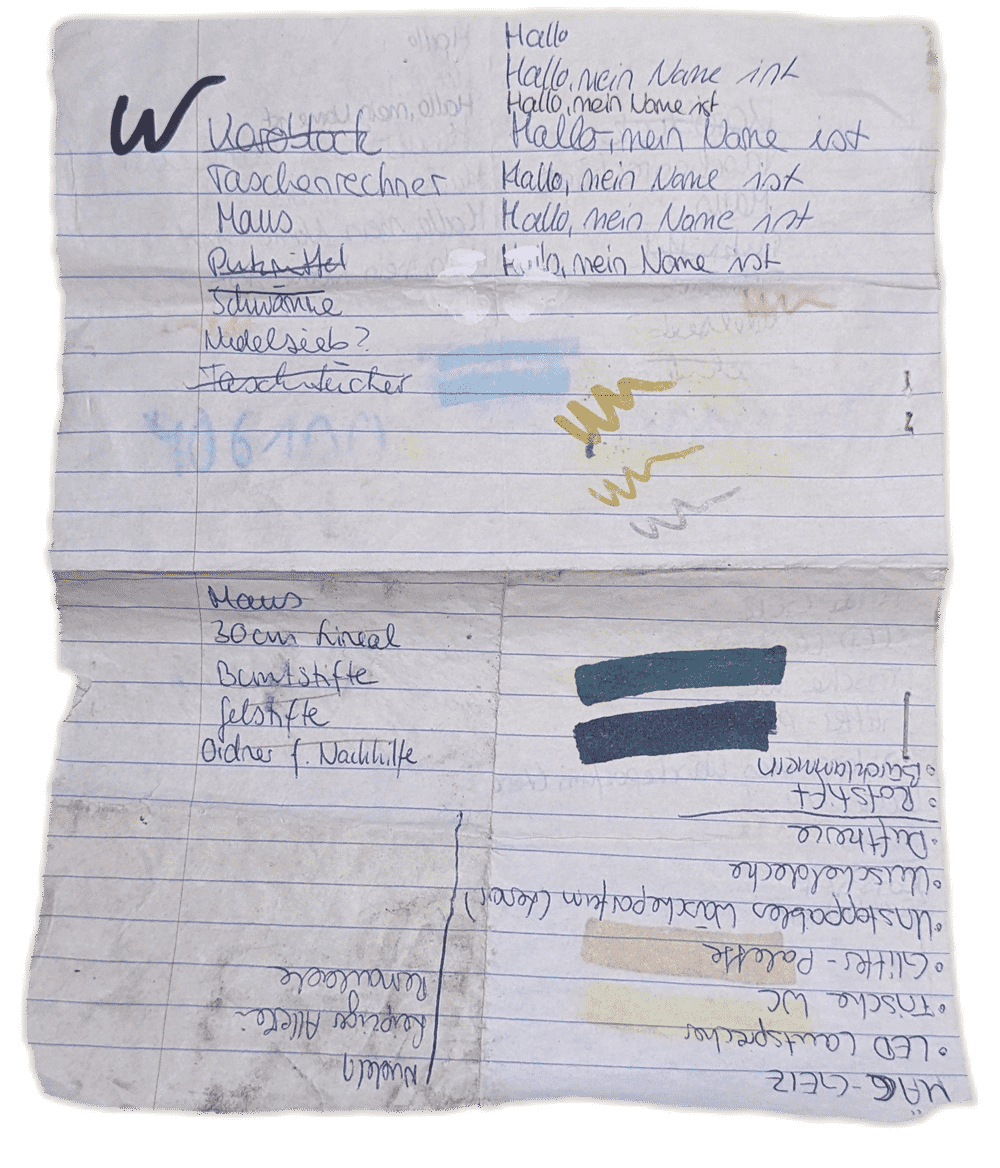 Hallo
Hallo, mein Name ist
Hallo, mein Name ist
W
Hallo, mein Name ist
Taschenrechner
Hallo, mein Name ist
Maus
Hallo, mein Name ist
Putzmittel
Hallo, mein Name ist
Schwämme
Nudelsieb?
Taschentücher
Maus
30cm Lineal
Buntstifte
Gelstifte
Ordner f. Nachhilfe
MÄC-GEIZ
• LED Lautsprecher
• Frische WC
• Glitter-Palette
• Unstoppables Wäscheparfum (lenor)
• Kuscheldecke
• Duftkerze
• Rotstift
• Büroklammern
Nudeln
Leipziger Allerlei
Remoulade